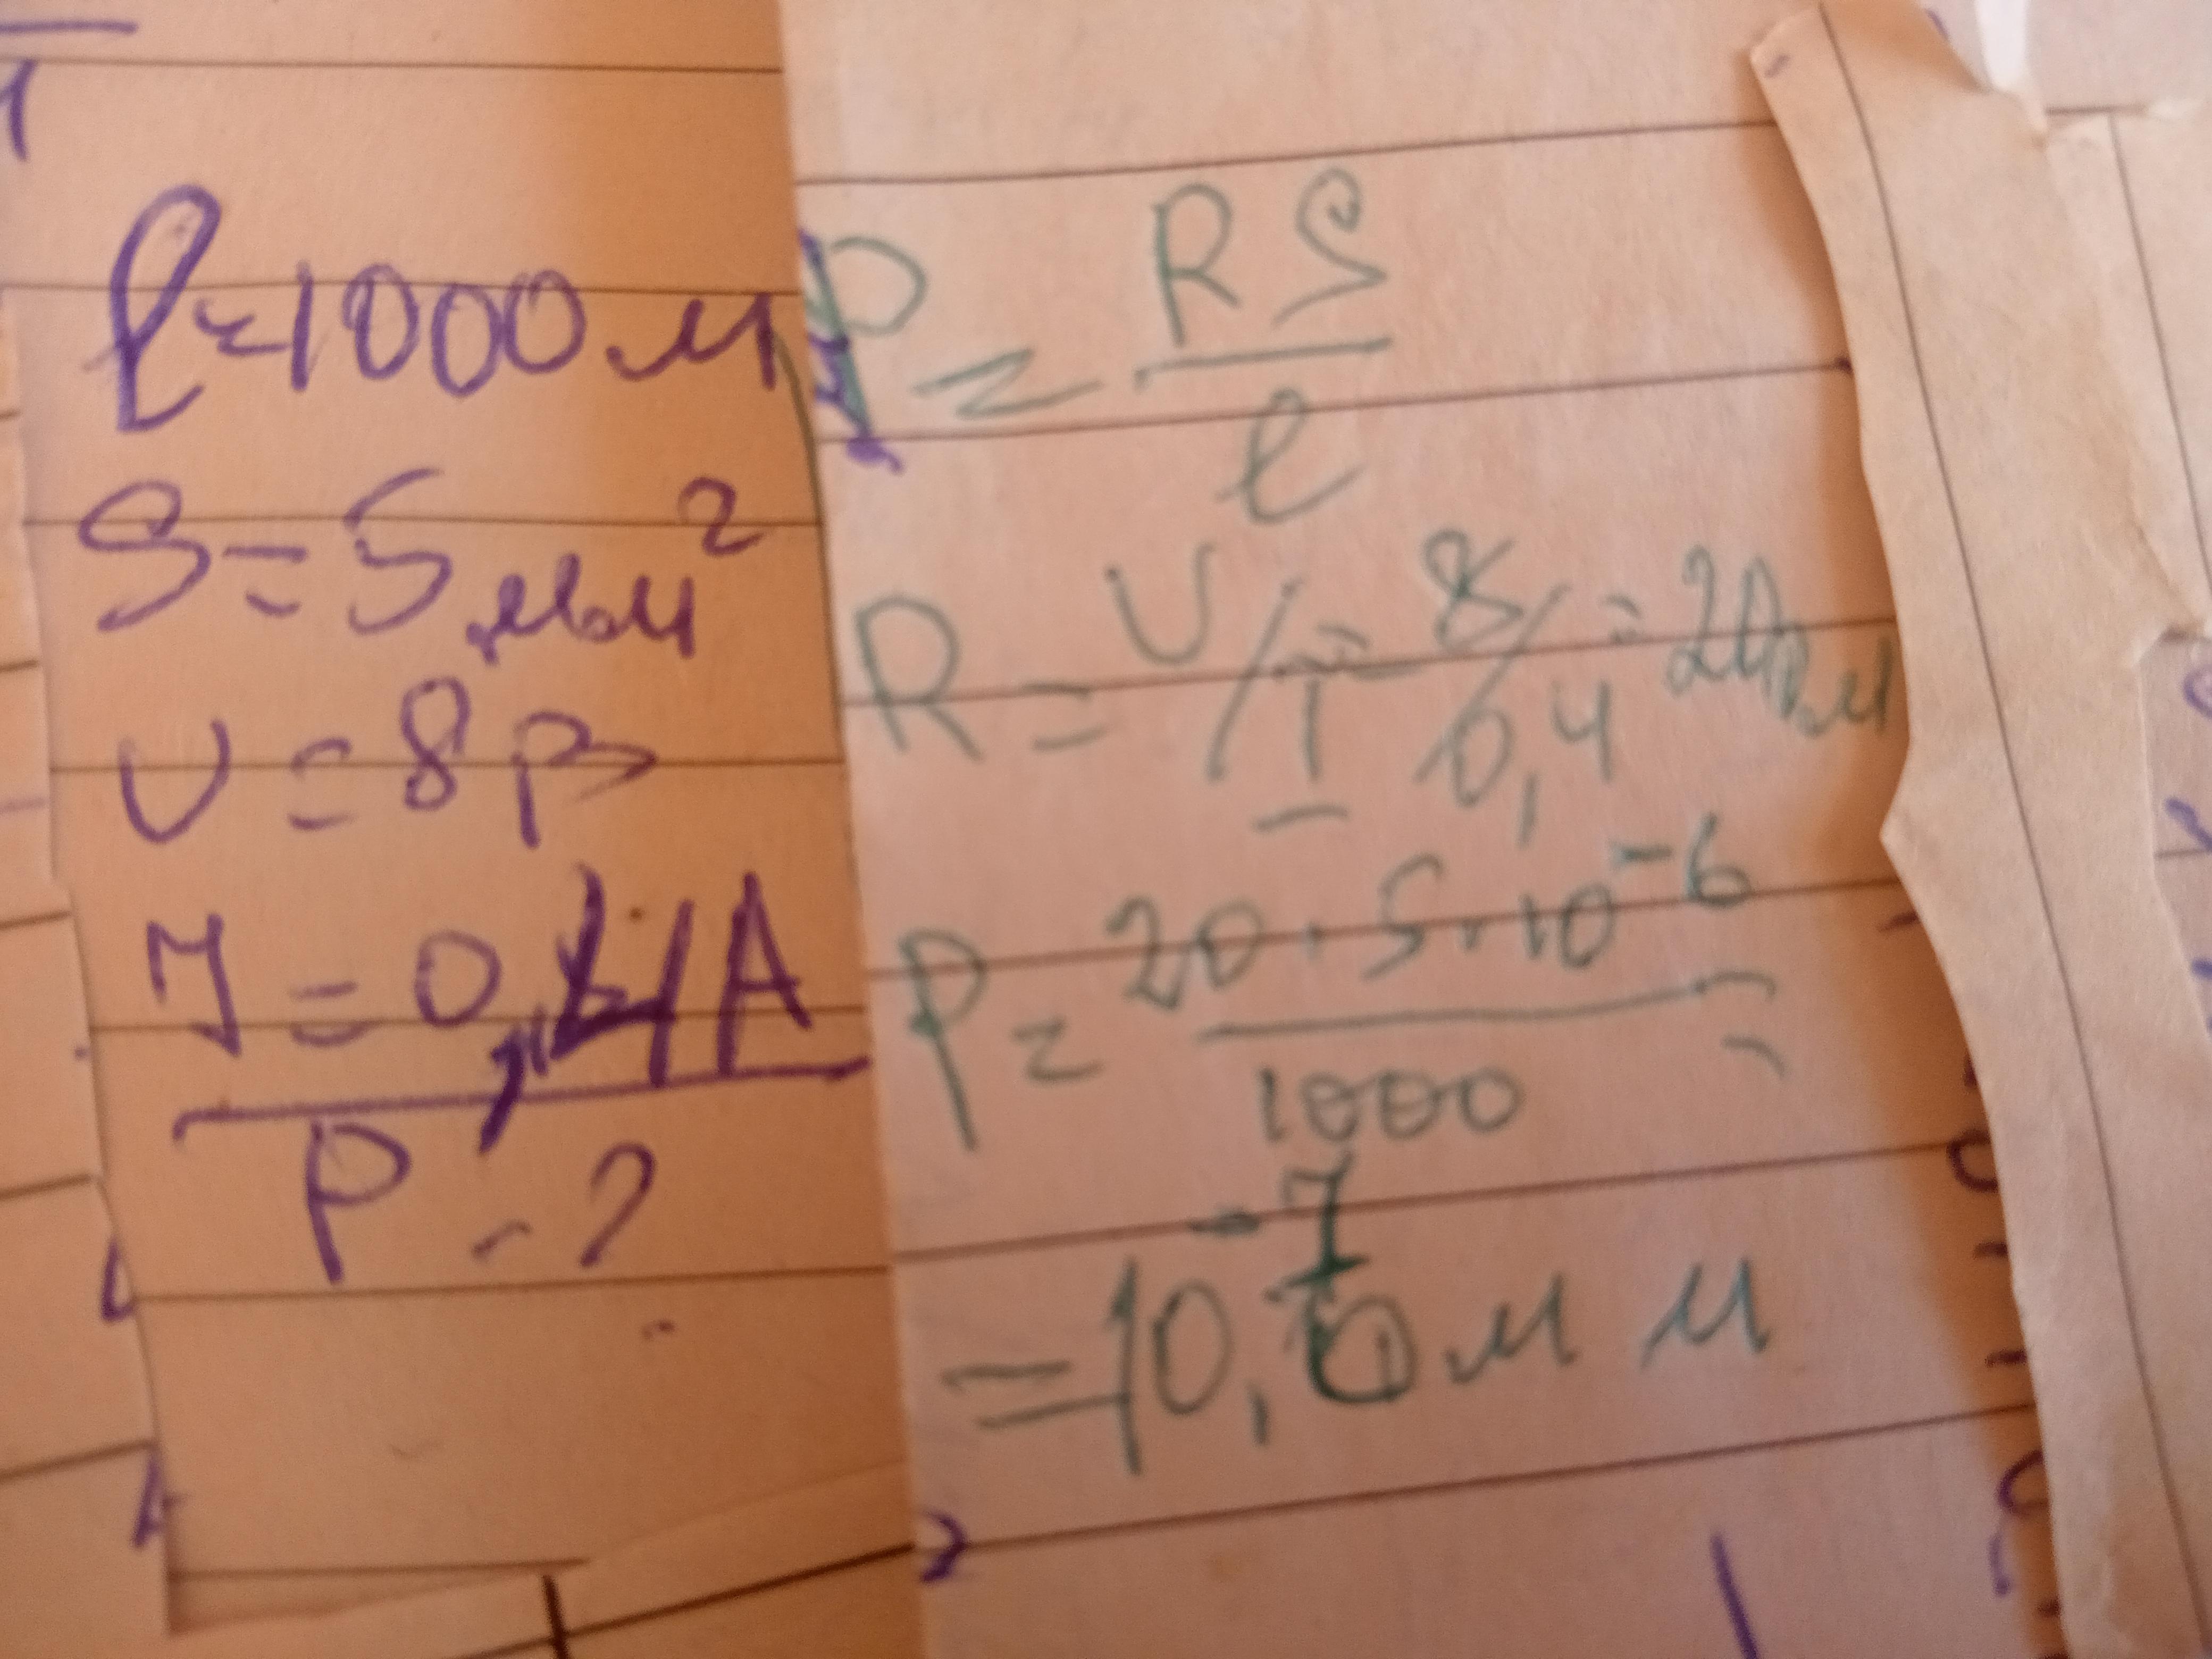 l=1000 м
S=5 мм²
U=8 В
I=0,4А
ρ-?
ρ=RS/l
R=U/I=8/0,4=20 Ом
ρ=20·5·10⁻⁶/1000=
=10⁻⁷ Ом м